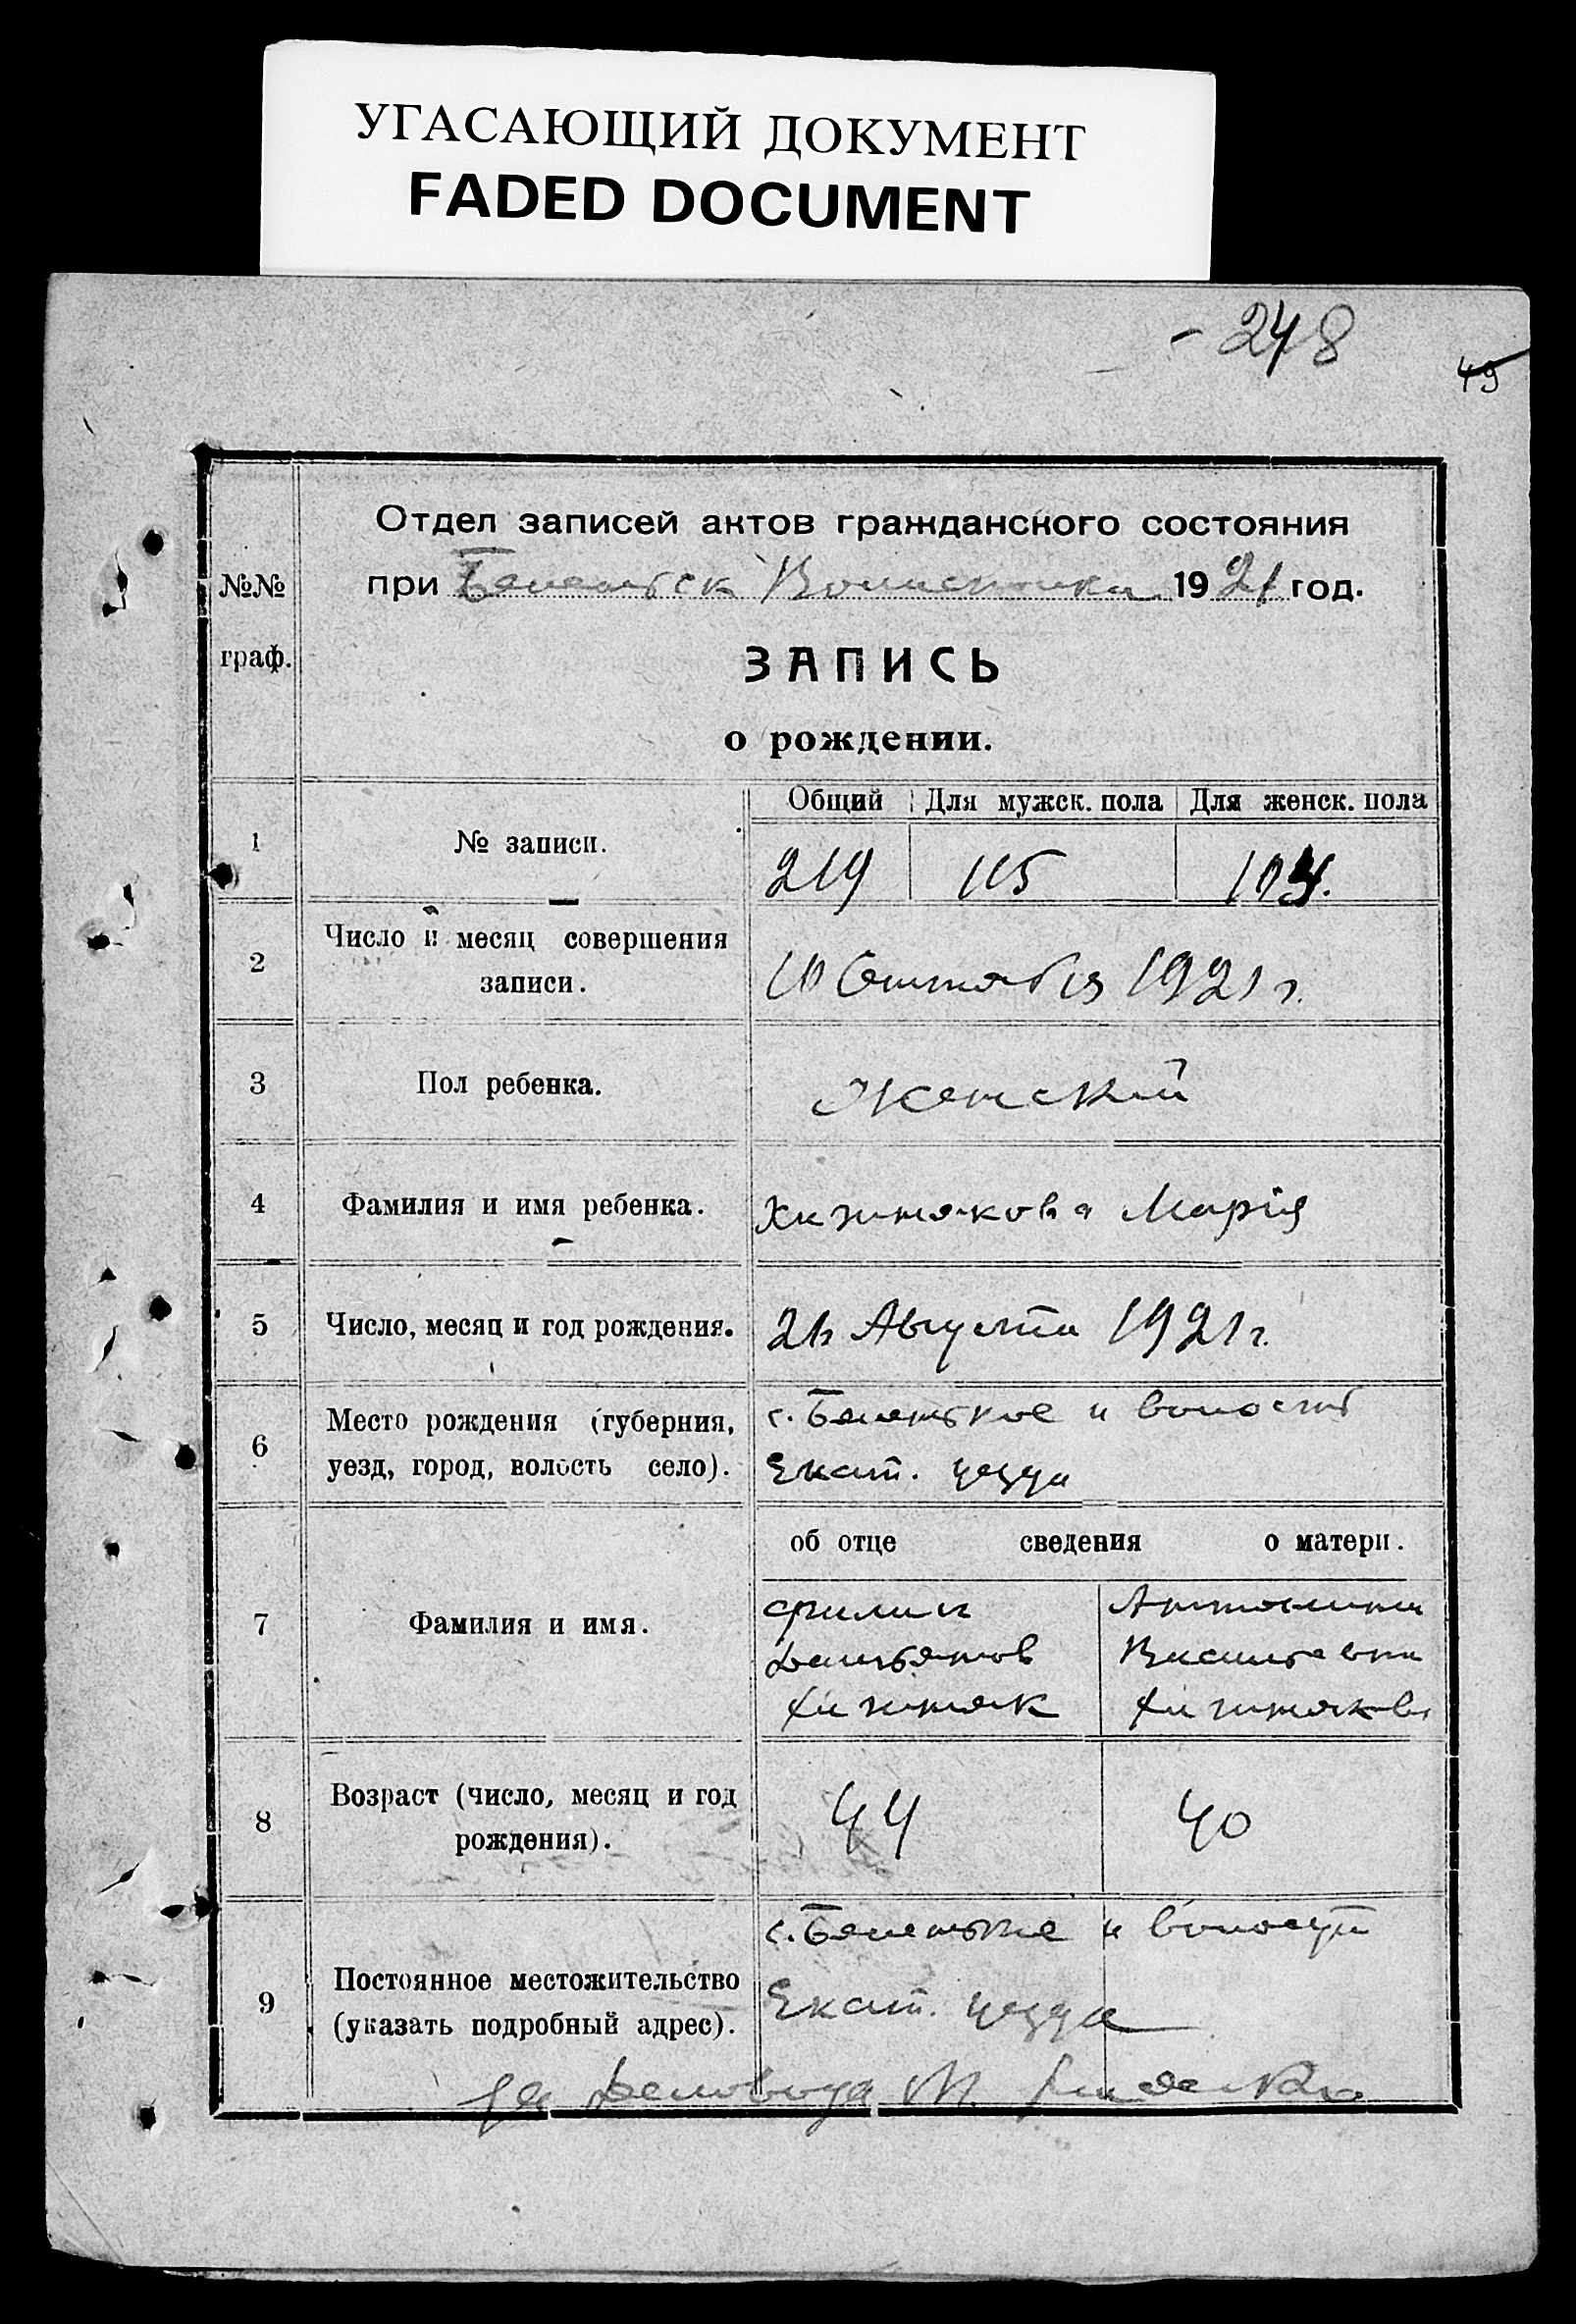 УГАСАЮЩИЙ ДОКУМЕНТ
FADED DOCUMENT
248
49
Отдел записей актов гражданского состояния
№№ граф.
при 1921 год.
ЗАПИСЬ
о рождении.
Общий Для мужск. пола Для женск. пола
1 № записи. 219 115 104.
2 Число и месяц совершения
записи.
10 1921 г.
3 Пол ребенка. Женский
4 Фамилия и имя ребенка. Хижнякова Марія
5 Число, месяц и год рождения. Августа 1921 г.
6 Место рождения (губерния,
уезд, город, волость село).
с. и волость
Екат. уезда
об отце сведения о матери.
7 Фамилия и имя.
Филип Антонина
Васильевна
Хижняк Хижнякова
8 Возраст (число, месяц и год
рождения).
44 40
9 Постоянное местожительство
(указать подробный адрес).
с. и волости
Екат. уезда
За Деловода М.